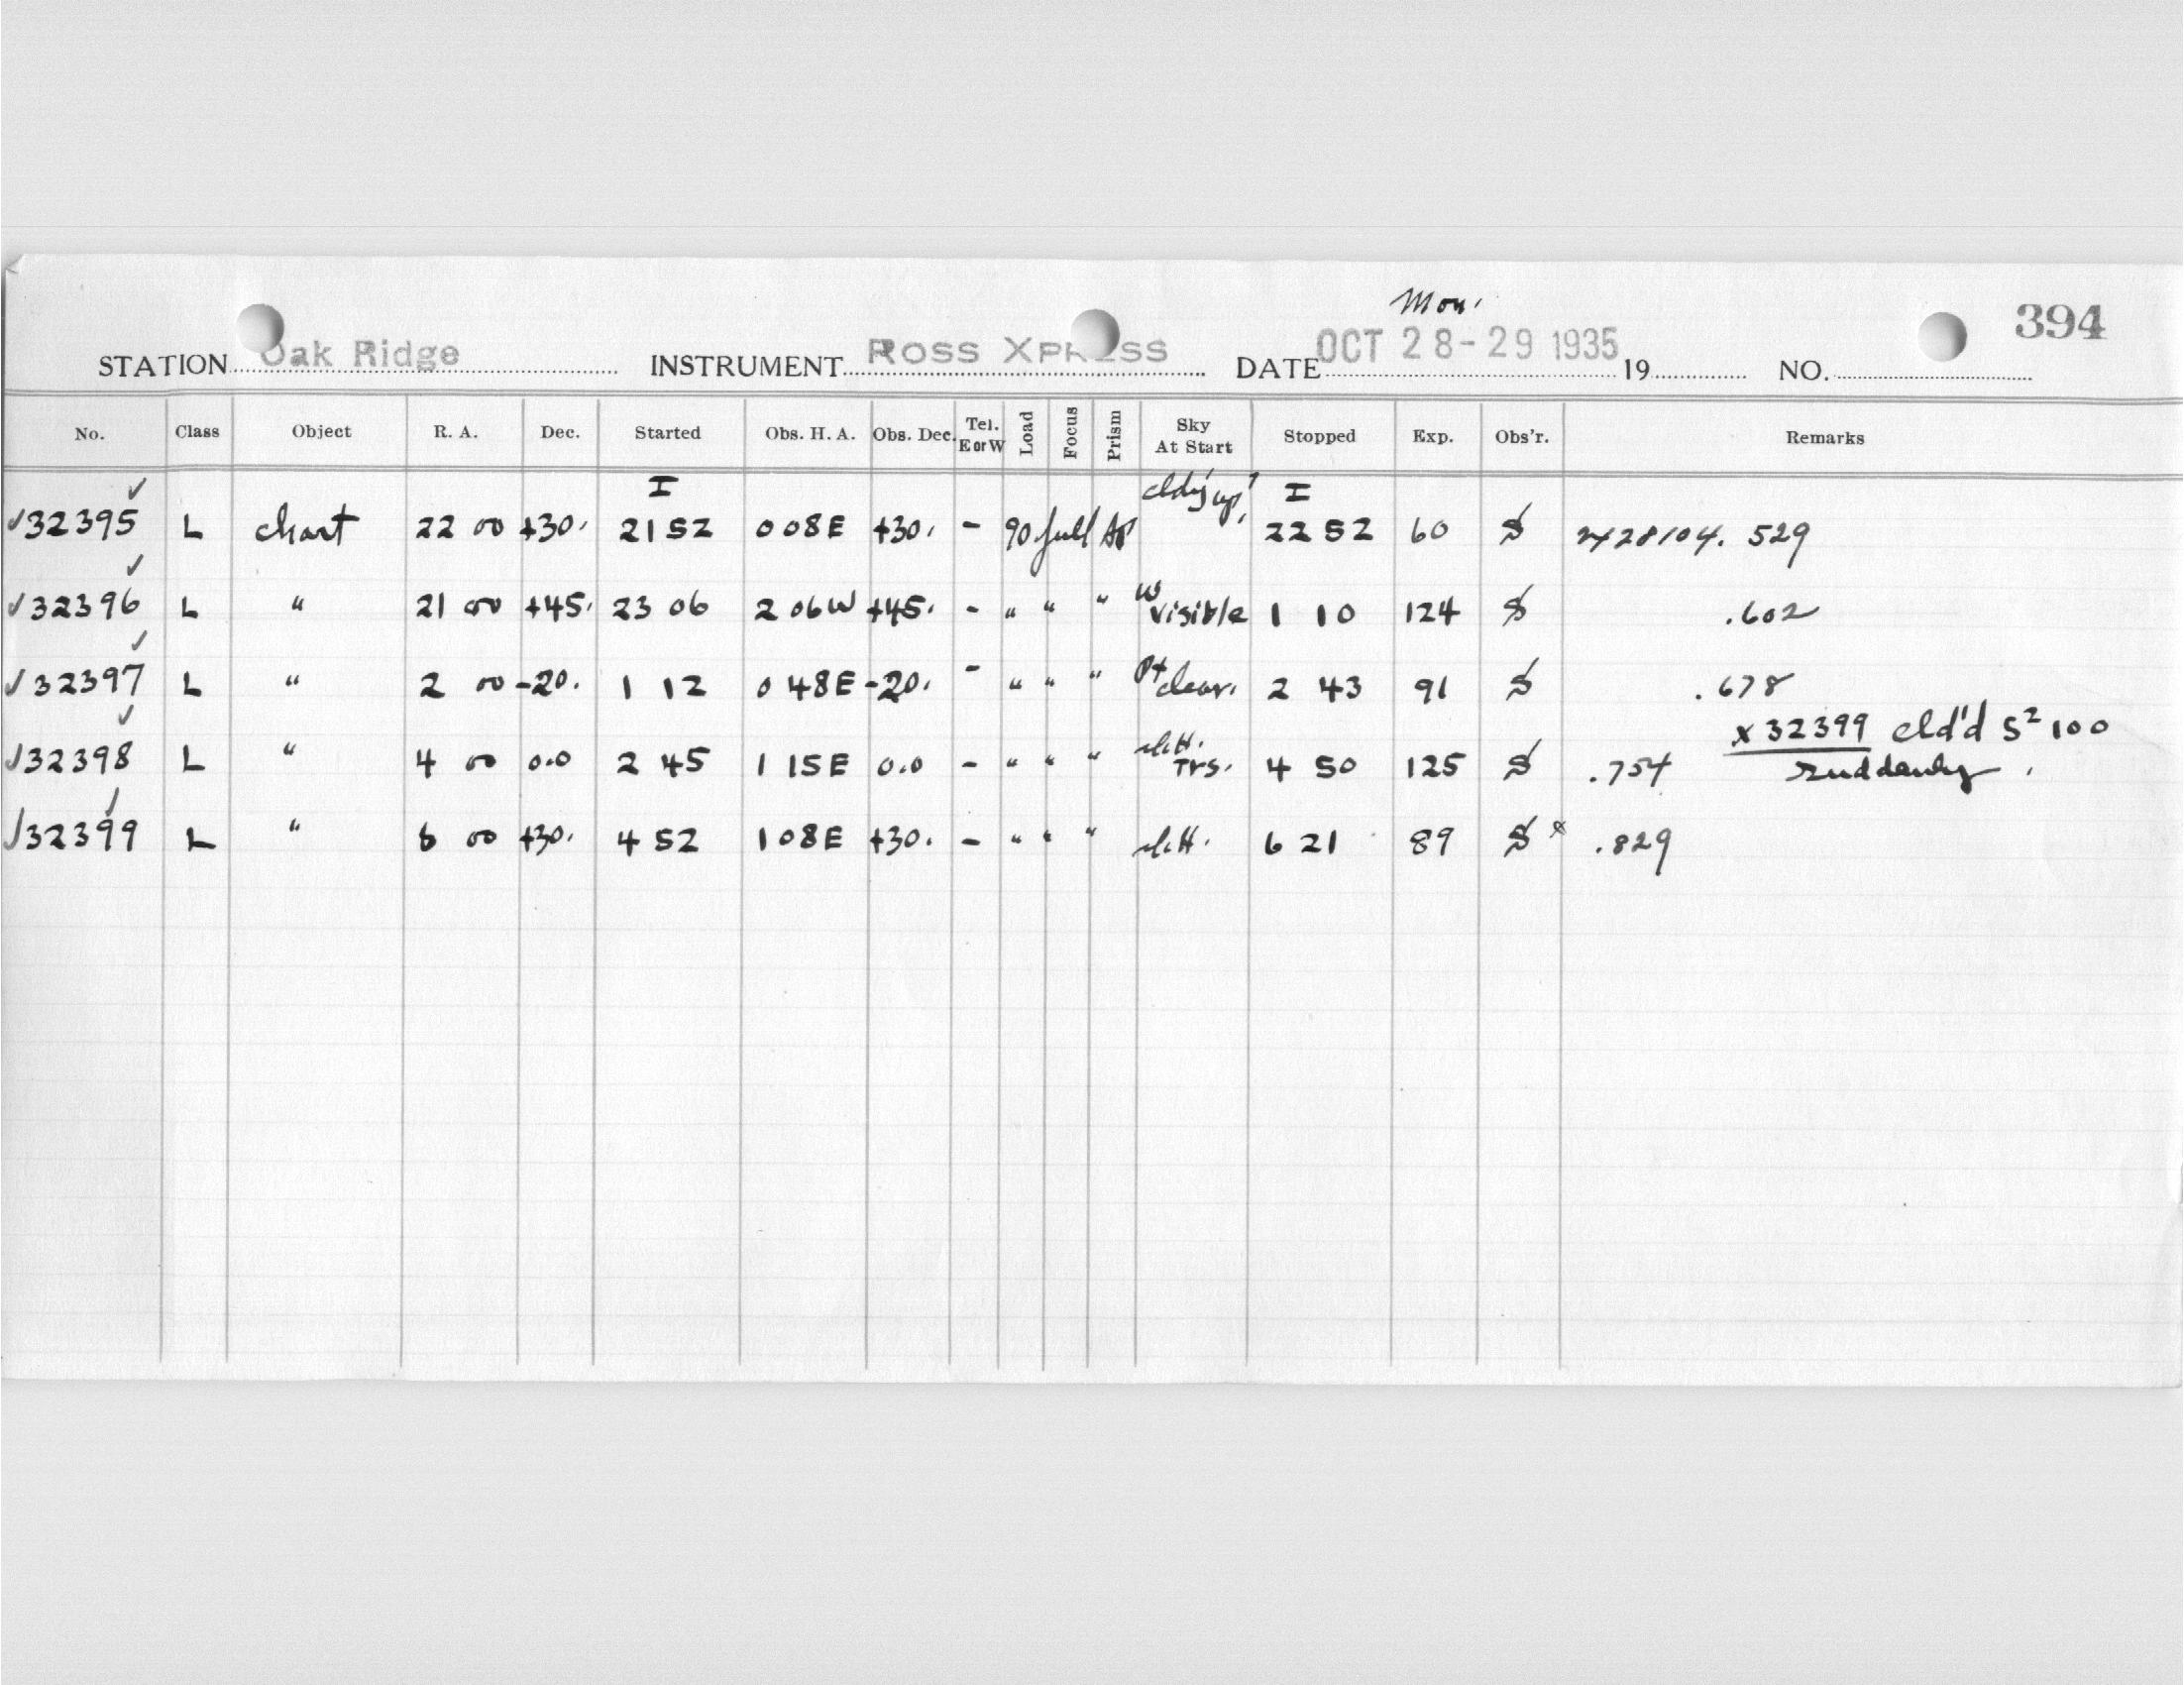 Mon. 394
STATION Oak Ridge INSTRUMENT ROSS XPRESS DATE OCT 28-29 1935 19 NO.
No. Class Object R. A. Dec. Started Obs. H. A. Obs. Dec. Tel. E or W Load Focus Prism Sky At Start Stopped Exp. Obs'r. Remarks
I cldy up, I
✓32395 ✓ L chart 22 00 +30. 21 52 0 08E +30. - 90 full 22 52 60 S 2428104. 529
✓32396 ✓ L " 21 00 +45. 23 06 2 06W +45. - " " " W visible 1 10 124 S .602
✓32397 ✓ L " 2 00 -20. 1 12 0 48E -20. - " " " Pt clear. 2 43 91 S .678
x 32399 cld'd S² 100
✓32398 ✓ L " 4 00 0.0 2 45 1 15E 0.0 - " " " Trs. 4 50 125 S .754 suddenly.
✓32399 ✓ L " 6 00 +30. 4 52 1 08E +30. - " " " 6 21 89 S x .829